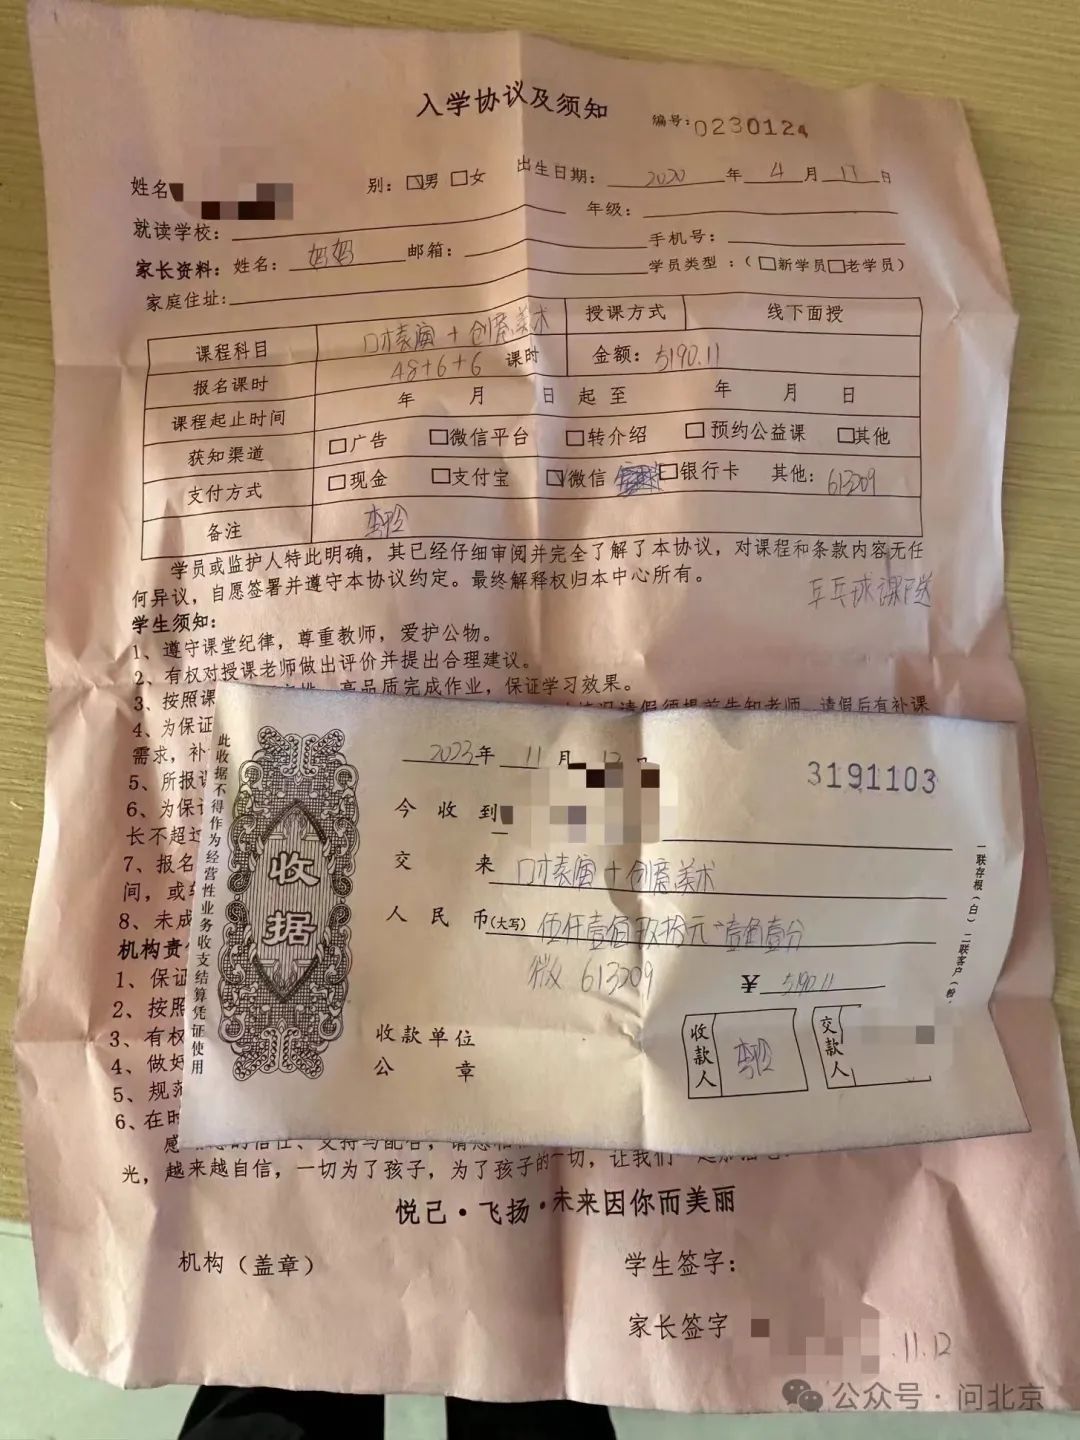 入学协议及须知
编号:0230124
姓名
别: 男 女
出生日期: 2020 年 4 月 17 日
就读学校:
年级:
家长资料: 姓名: 妈妈 邮箱:
手机号:
学员类型 :( 新学员 老学员)
家庭住址:
课程科目 口才表演+创意美术 授课方式 线下面授
报名课时 48+6+6 课时 金额: 5190.11
课程起止时间 年 月 日 起 至 年 月 日
获知渠道 广告 微信平台 转介绍 预约公益课 其他
支付方式 现金 支付宝 微信 银行卡 其他: 613209
备注
学员或监护人特此明确,其已经仔细审阅并完全了解了本协议,对课程和条款内容无任
何异议,自愿签署并遵守本协议约定。最终解释权归本中心所有。
乒乓球课送
学生须知:
1、遵守课堂纪律,尊重教师,爱护公物。
2、有权对授课老师做出评价并提出合理建议。
3、按照课 高品质完成作业,保证学习效果。
4、为保证 情况请假须提前告知老师,请假后有补课
需求,补
5、所报课
6、为保证
长不超过
7、报名
间,或
8、未成
机构责
1、保证
2、按照
3、有权
4、做好
5、规范
6、在时
光,越来越自信,一切为了孩子,为了孩子的一切,让我们一起
悦己·飞扬·未来因你而美丽
机构(盖章)
学生签字:
家长签字
11.12
此收据不得作为经营性业务收支结算凭证使用
收据
2023年 11 月 12 日
3191103
今收到
交来 口才表演+创意美术
人民币(大写) 伍仟壹佰玖拾元壹角壹分
微 613209
¥ 5190.11
收款单位
公章
收款人
交款人
一联存根(白) 二联客户(粉
公众号·问北京